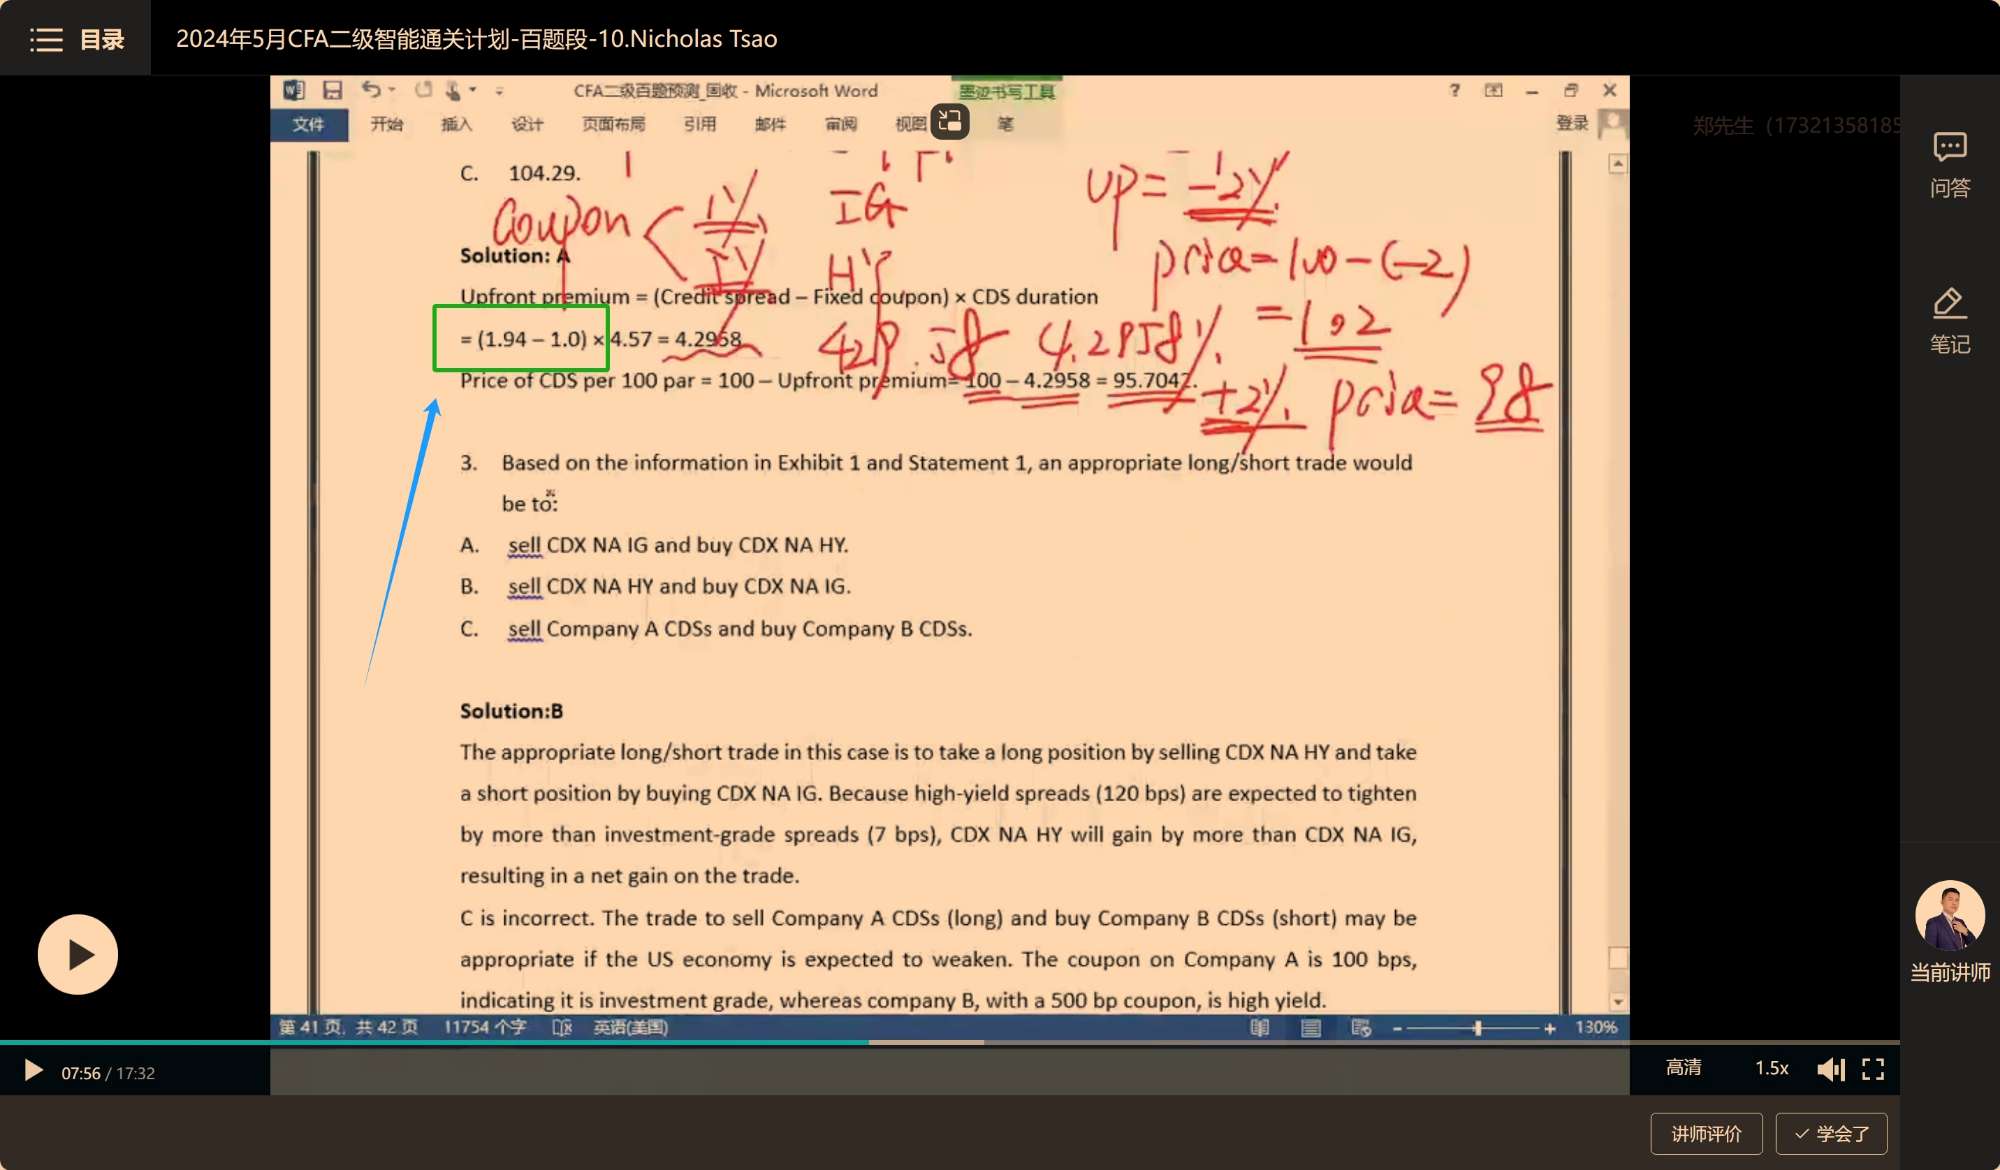 目录
2024年5月CFA二级智能通关计划-百题段-10.Nicholas Tsao
CFA二级百题预测_固收 - Microsoft Word
墨迹书写工具
文件 开始 插入 设计 页面布局 引用 邮件 审阅 视图 笔
登录
郑先生 (17321358185
问答
笔记
C. 104.29.
Coupon
1%
5%
IG
HY
up = -2%
price = 100 - (-2)
= 102
Solution: A
Upfront premium = (Credit spread – Fixed coupon) × CDS duration
= (1.94 – 1.0) × 4.57 = 4.2958
429.58
4.2958%
Price of CDS per 100 par = 100 – Upfront premium= 100 – 4.2958 = 95.7042.
+2%.
price = 98
3. Based on the information in Exhibit 1 and Statement 1, an appropriate long/short trade would
be to:
A. sell CDX NA IG and buy CDX NA HY.
B. sell CDX NA HY and buy CDX NA IG.
C. sell Company A CDSs and buy Company B CDSs.
Solution:B
The appropriate long/short trade in this case is to take a long position by selling CDX NA HY and take
a short position by buying CDX NA IG. Because high-yield spreads (120 bps) are expected to tighten
by more than investment-grade spreads (7 bps), CDX NA HY will gain by more than CDX NA IG,
resulting in a net gain on the trade.
C is incorrect. The trade to sell Company A CDSs (long) and buy Company B CDSs (short) may be
appropriate if the US economy is expected to weaken. The coupon on Company A is 100 bps,
indicating it is investment grade, whereas company B, with a 500 bp coupon, is high yield.
当前讲师
第 41 页, 共 42 页 11754 个字 英语(美国) 130%
07:56 / 17:32
高清 1.5x
讲师评价 学会了